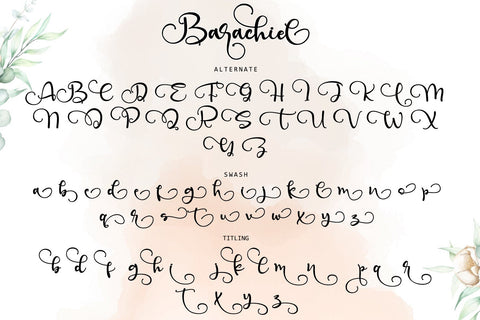 Barachiel
ALTERNATE
A B C D E F G H I J K L M
N O P Q R S T U V W X
Y Z
SWASH
a b c d e f g h i j k l m n o p
q r s t u v w x y z
TITLING
b d f g h i j k l m n p q r
t x y z